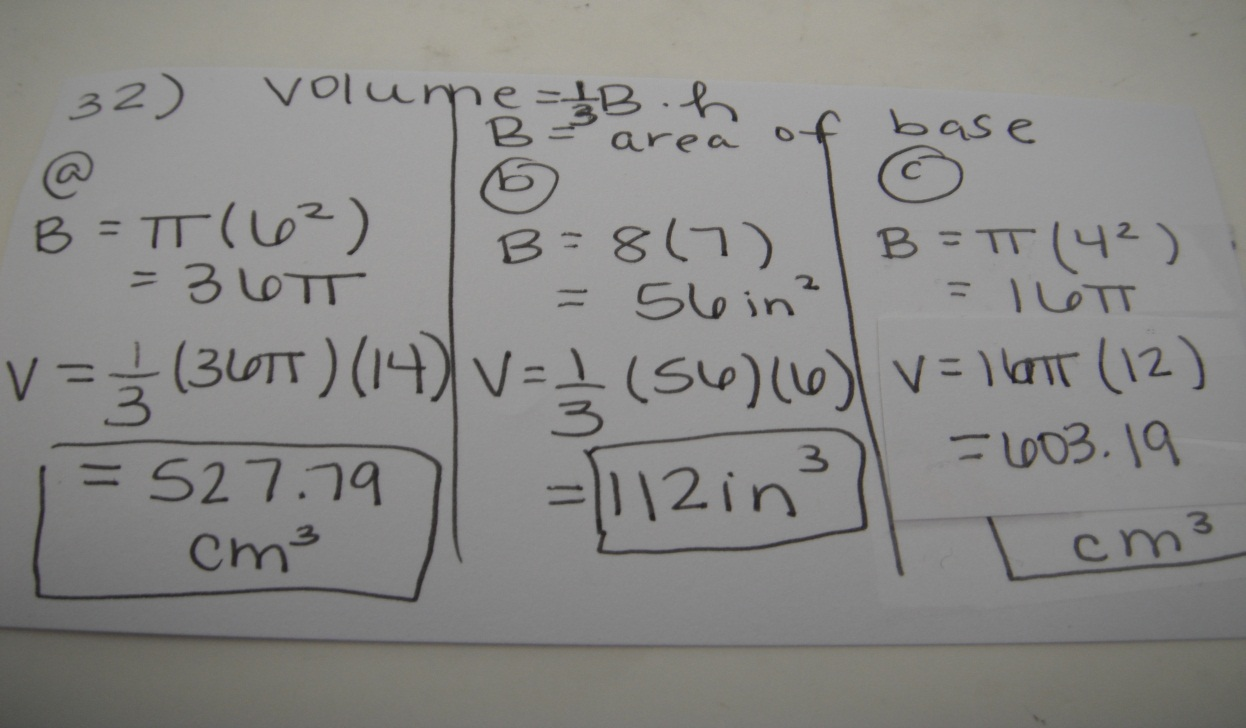 32) Volume = 1/3 B · h
B = area of base
ⓐ
B = π(6²)
= 36π
V = 1/3 (36π)(14)
= 527.79
cm³
ⓑ
B = 8(7)
= 56 in²
V = 1/3 (56)(6)
= 112 in³
ⓒ
B = π(4²)
= 16π
V = 16π (12)
= 603.19
cm³